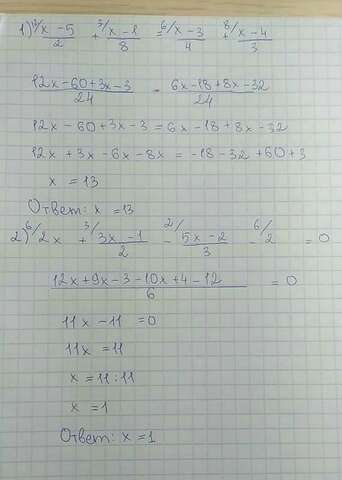 1) 12/ x - 5 / 2 + 3/ x - 1 / 8 = 6/ x - 3 / 4 + 8/ x - 4 / 3
12x - 60 + 3x - 3 / 24 = 6x - 18 + 8x - 32 / 24
12x - 60 + 3x - 3 = 6x - 18 + 8x - 32
12x + 3x - 6x - 8x = -18 - 32 + 60 + 3
x = 13
Ответ: x = 13
2) 6/ 2x + 3/ 3x - 1 / 2 - 2/ 5x - 2 / 3 - 6/ 2 = 0
12x + 9x - 3 - 10x + 4 - 12 / 6 = 0
11x - 11 = 0
11x = 11
x = 11 : 11
x = 1
Ответ: x = 1